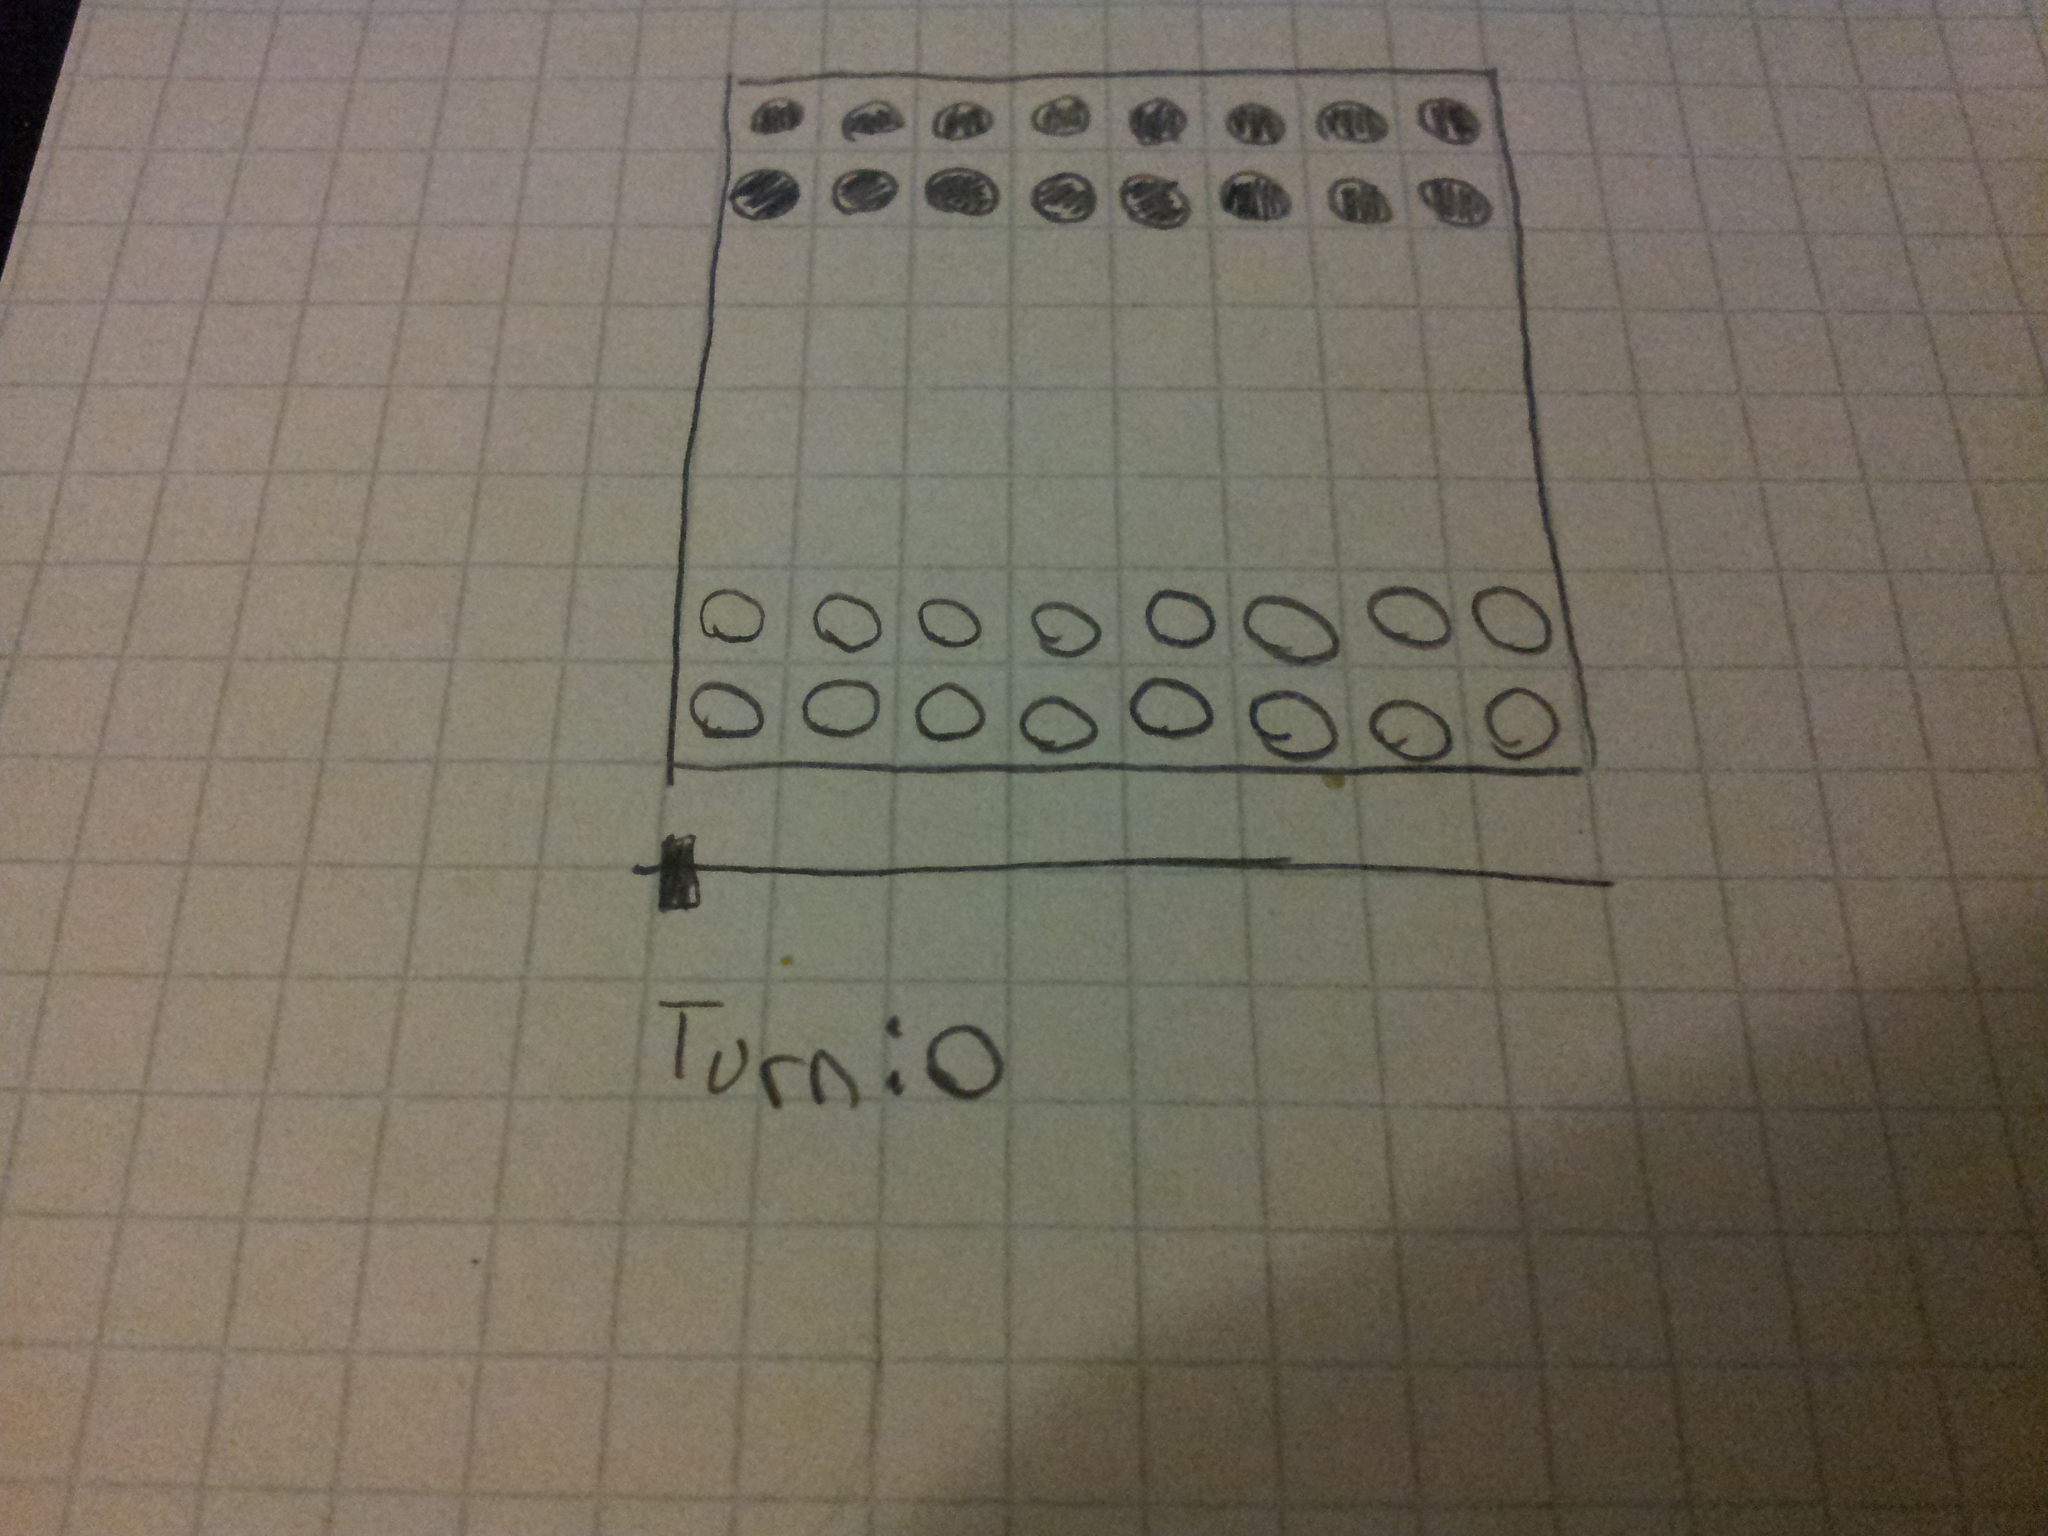 Turn: O